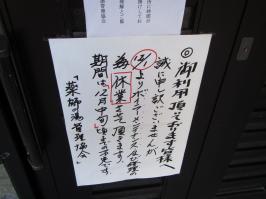 ◎御利用頂いております皆様へ
誠に申し訳ございませんが
12/1よりボイラーメンテナンス及び修理の
為休業させて頂きます。
期間は12月中旬頃までの予定です。
「薬師の湯管理協会」